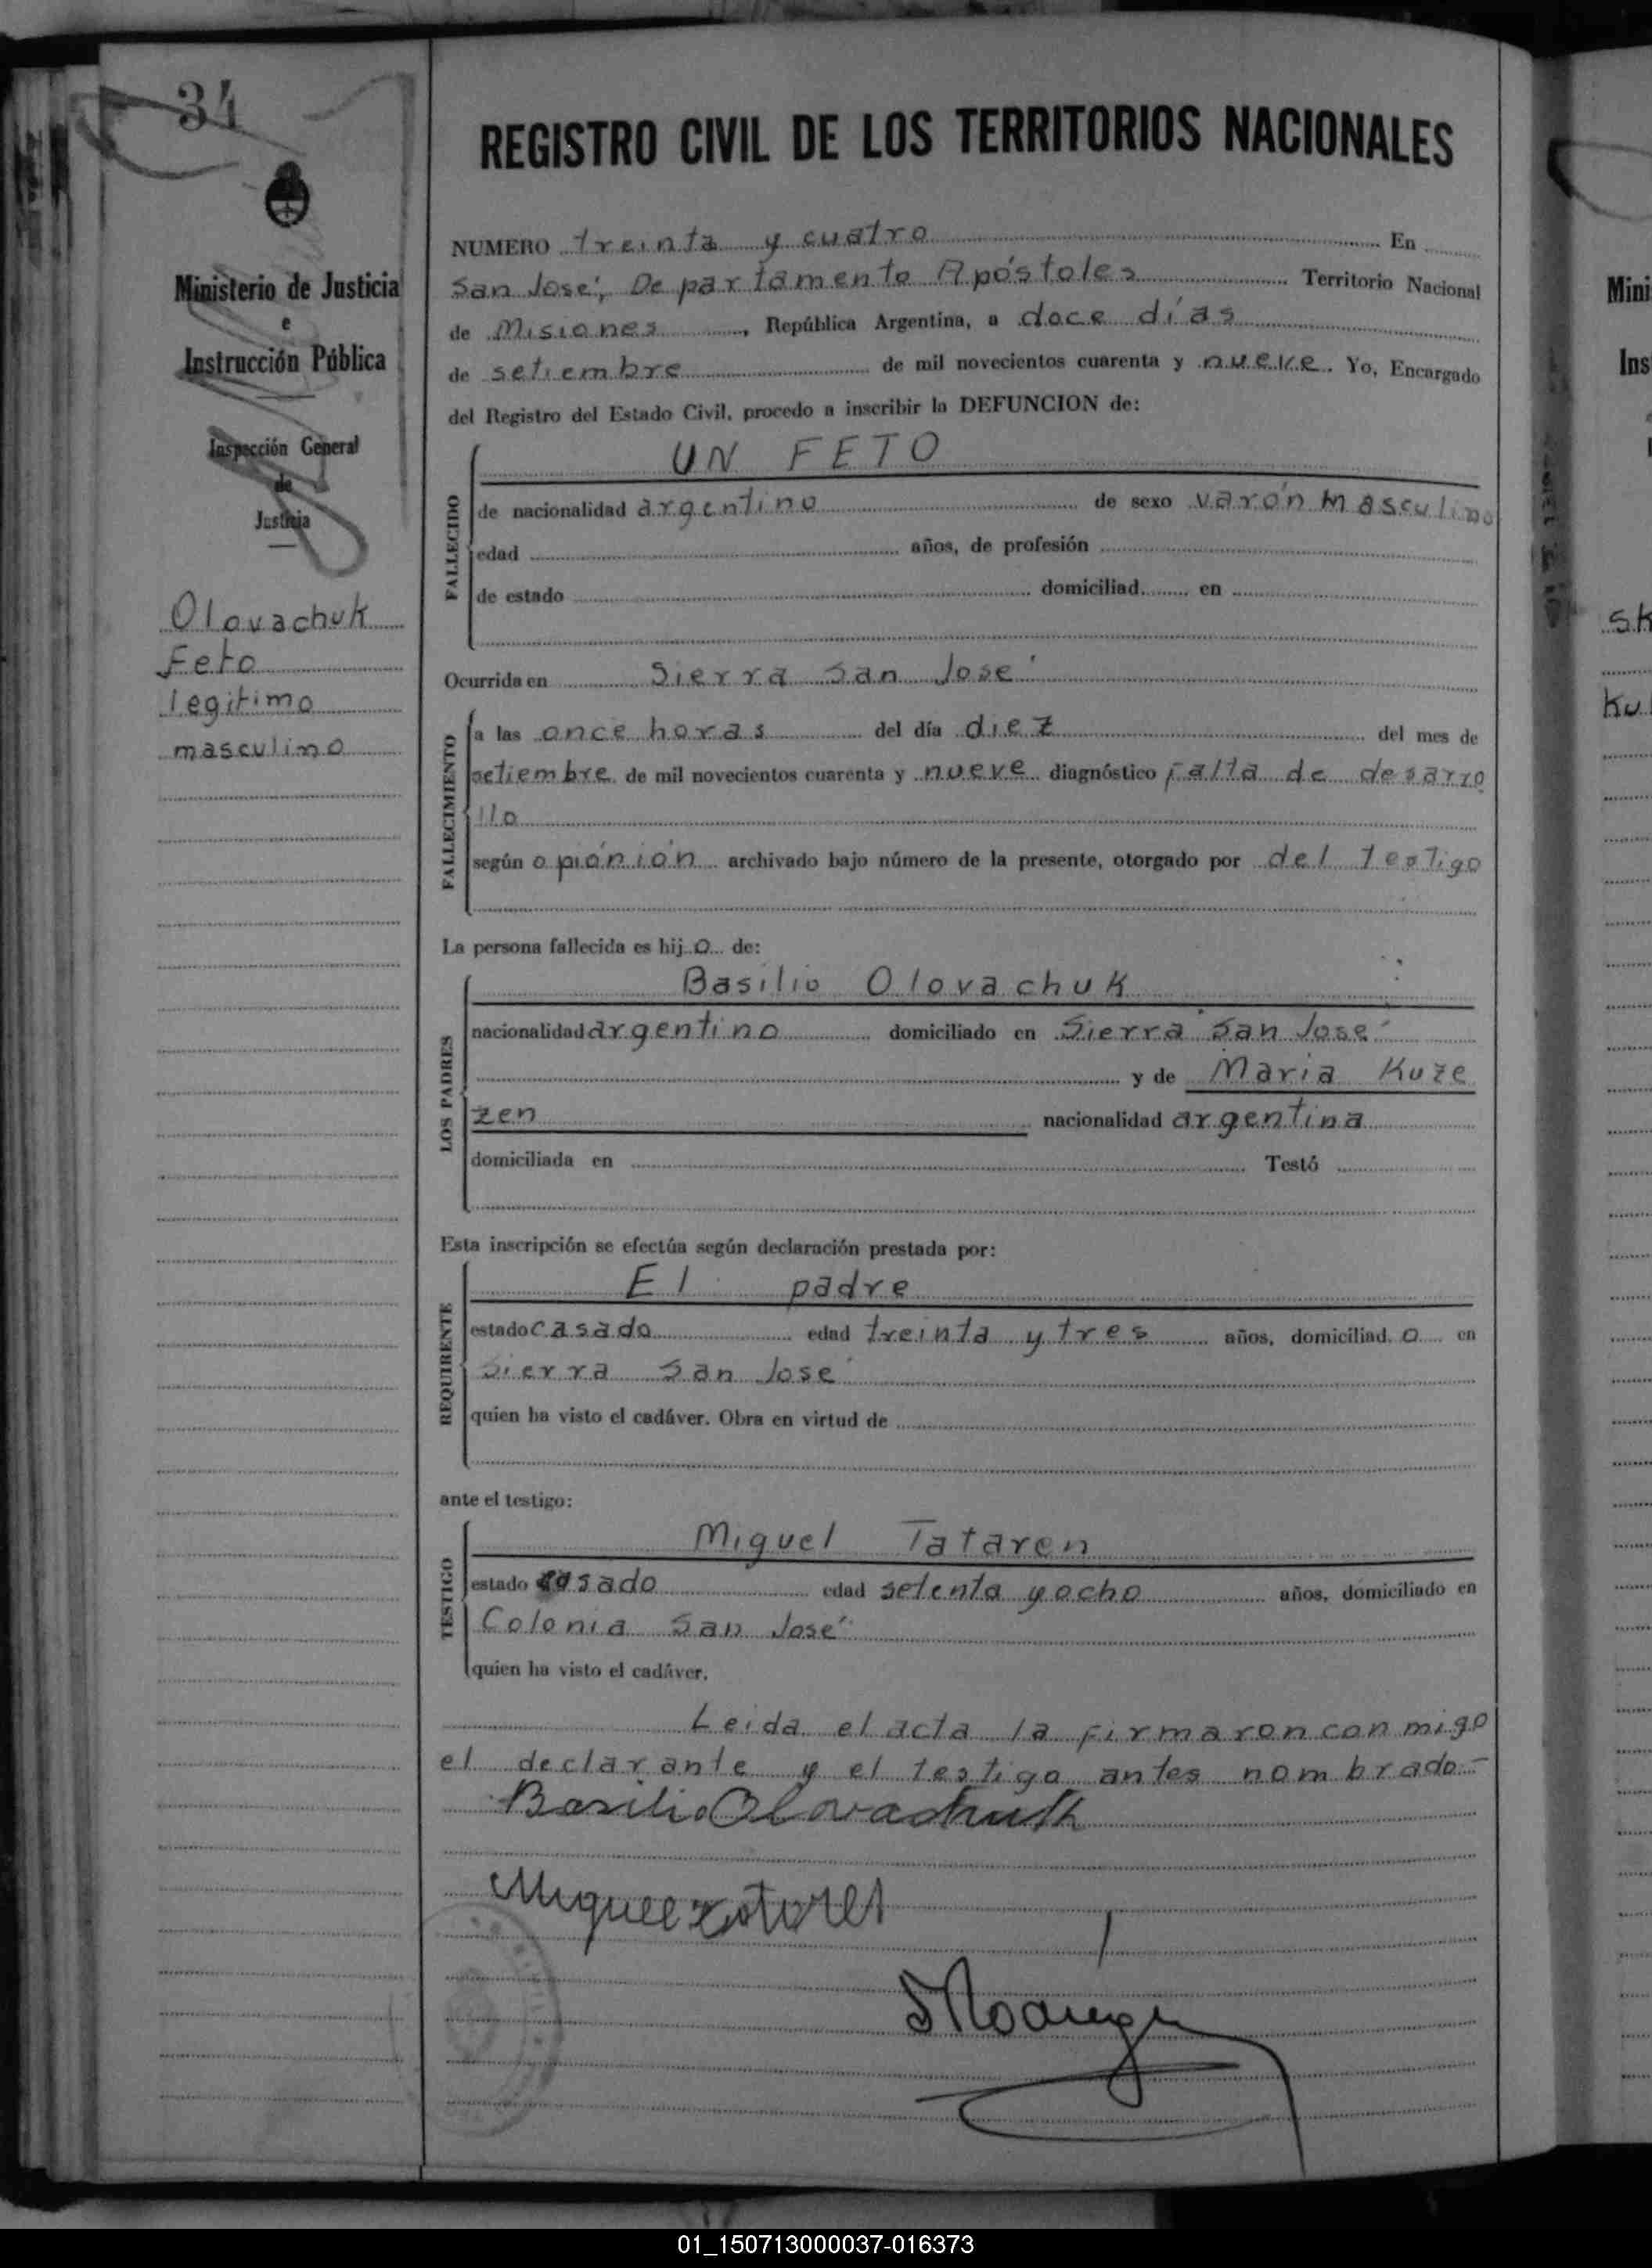 34
Ministerio de Justicia
e
Instrucción Pública
Inspección General
de
Justicia
Olovachuk
Feto
legitimo
masculino
REGISTRO CIVIL DE LOS TERRITORIOS NACIONALES
NUMERO treinta y cuatro En
San José, Departamento Apóstoles Territorio Nacional
de Misiones, República Argentina, a doce días
de setiembre de mil novecientos cuarenta y nueve. Yo, Encargado
del Registro del Estado Civil, procedo a inscribir la DEFUNCION de:
FALLECIDO
UN FETO
de nacionalidad argentino de sexo varón masculino
edad años, de profesión
de estado domiciliad en
Ocurrida en Sierra San José
FALLECIMIENTO
a las once horas del día diez del mes de
setiembre de mil novecientos cuarenta y nueve diagnóstico falta de desarro
llo
según opiónión archivado bajo número de la presente, otorgado por del testigo
La persona fallecida es hijo de:
LOS PADRES
Basilio Olovachuk
nacionalidad argentino domiciliado en Sierra San José
y de Maria Kuze
zen nacionalidad argentina
domiciliada en Testó
Esta inscripción se efectúa según declaración prestada por:
REQUIRENTE
El padre
estado casado edad treinta y tres años, domiciliado en
Sierra San José
quien ha visto el cadáver. Obra en virtud de
ante el testigo:
TESTIGO
Miguel Tataren
estado casado edad setenta y ocho años, domiciliado en
Colonia San José
quien ha visto el cadáver.
Leida el acta la firmaron conmigo
el declarante y el testigo antes nombrado-
Basilio Olovachuk
Miguel
Mini
Ins
01_150713000037-016373